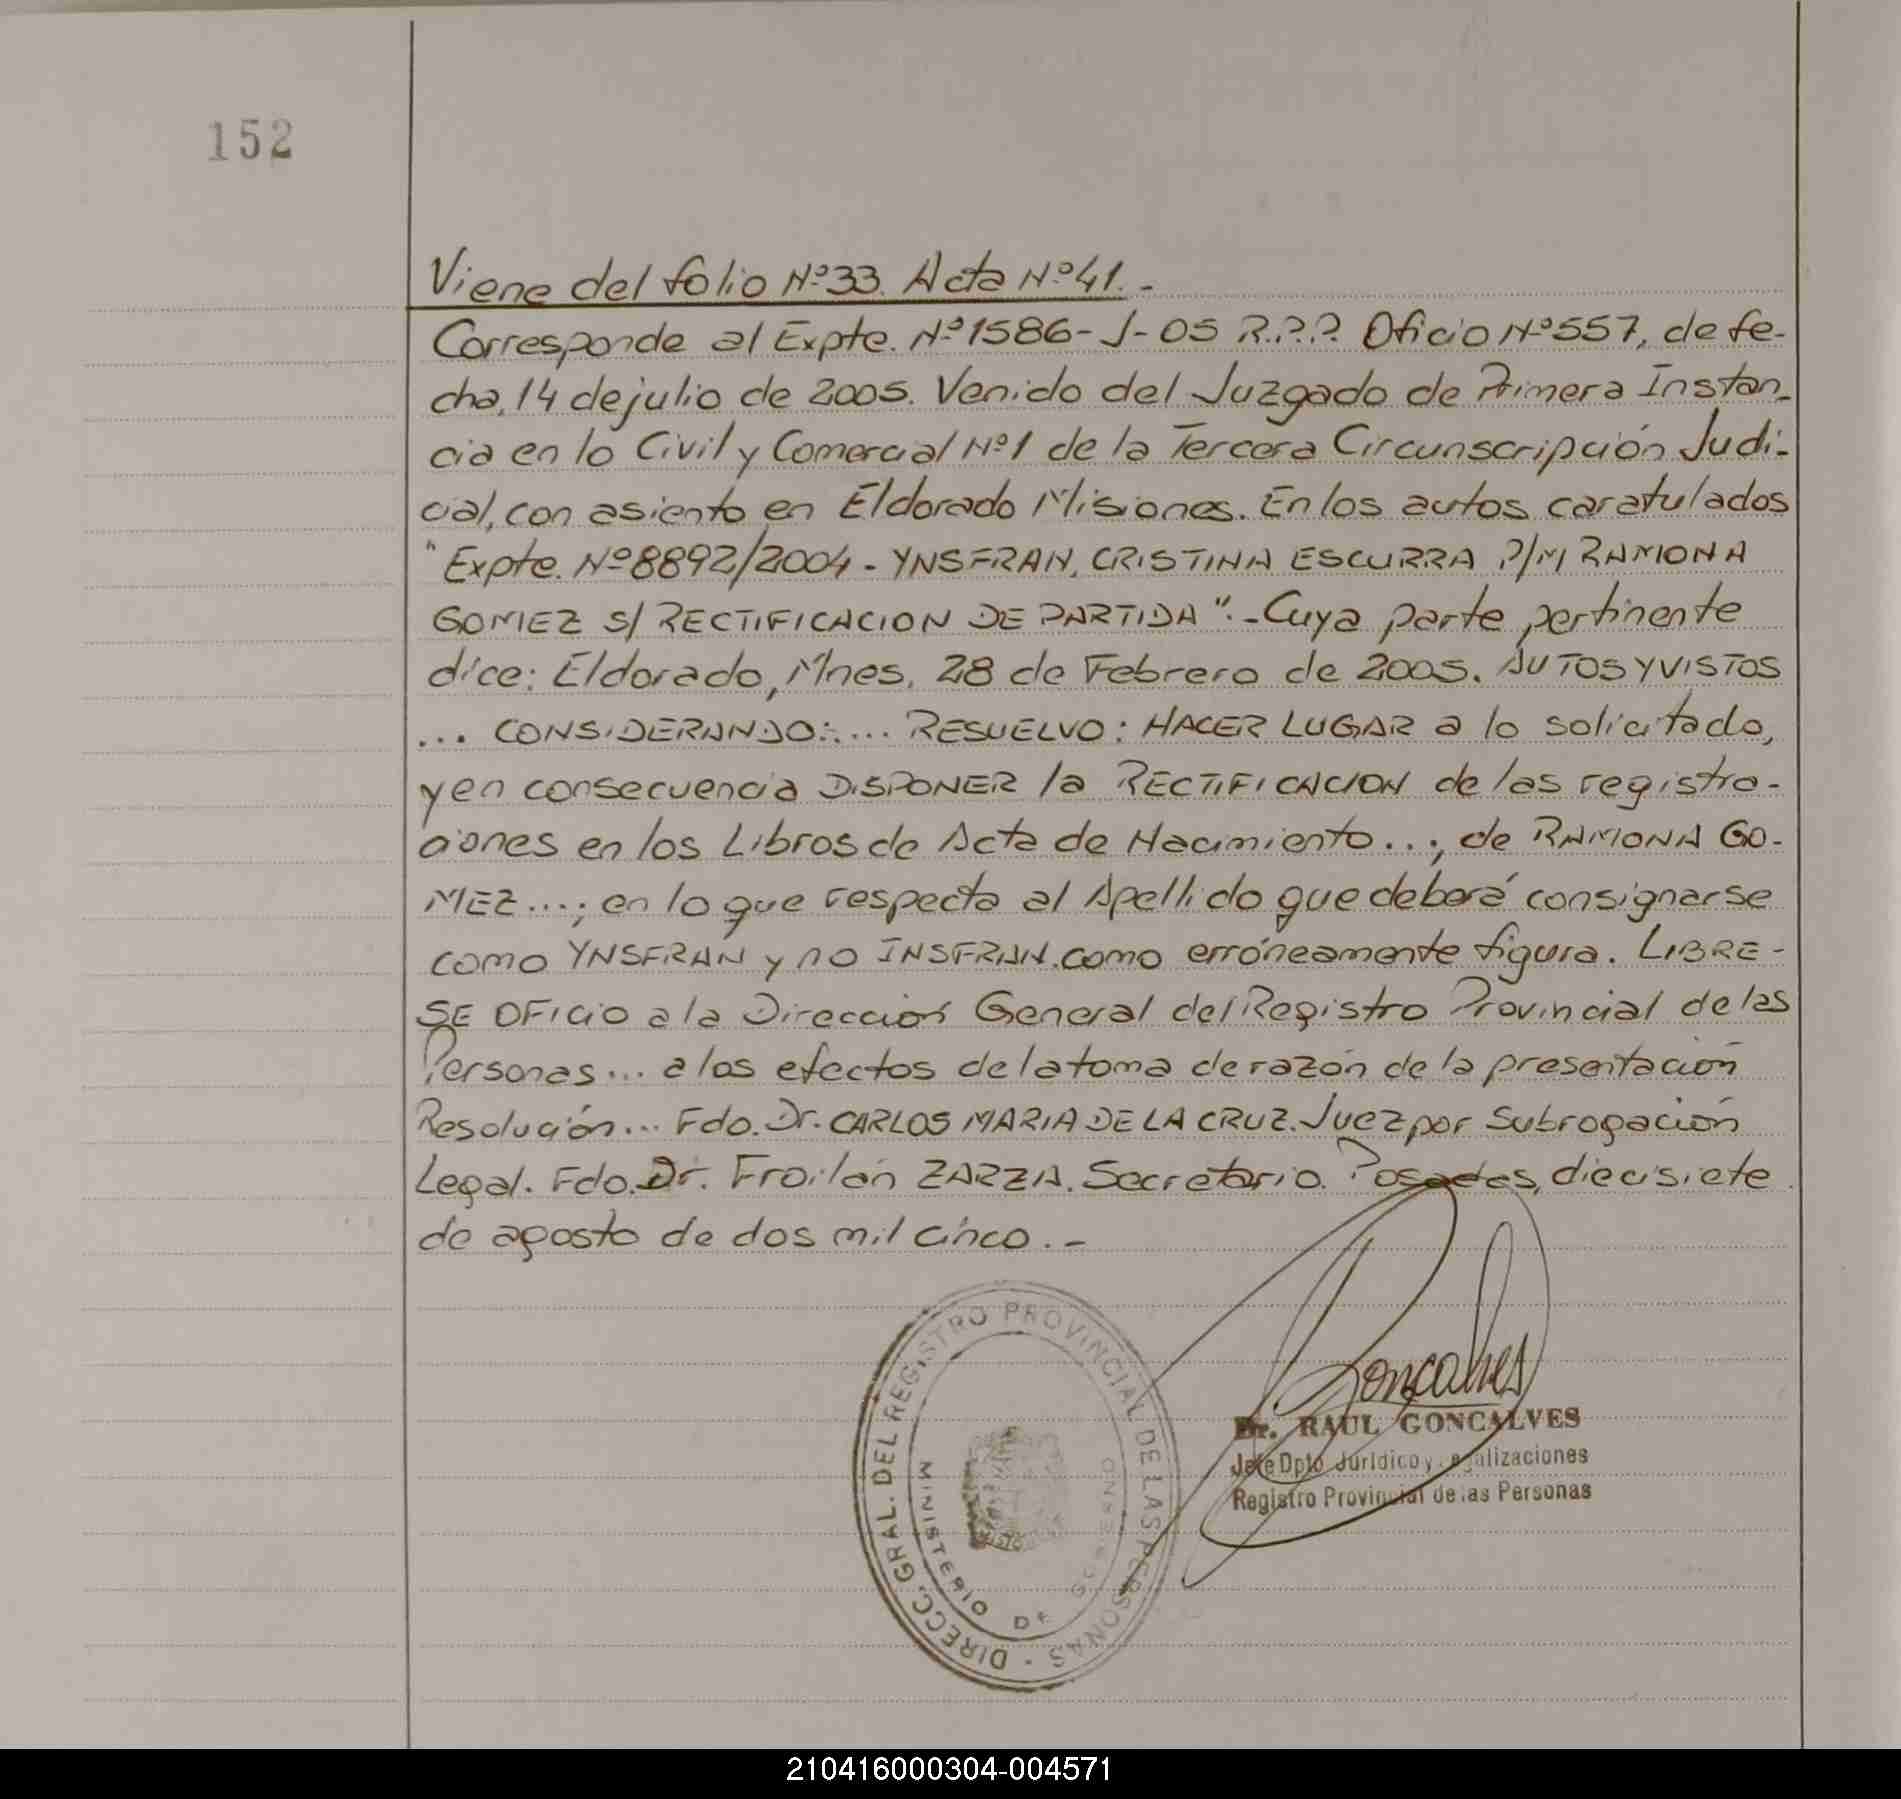 152
Viene del folio Nº33. Acta Nº41.-
Corresponde al Expte. Nº1586-J-05 R.P.P. Oficio Nº557, de fe-
cha, 14 de julio de 2005. Venido del Juzgado de Primera Instan-
cia en lo Civil y Comercial Nº1 de la Tercera Circunscripción Judi-
cial, con asiento en Eldorado Misiones. En los autos caratulados
"Expte. Nº8892/2004 - YNSFRAN, CRISTINA ESCURRA P/M RAMONA
GOMEZ S/ RECTIFICACION DE PARTIDA".- Cuya parte pertinente
dice: Eldorado, Mnes, 28 de Febrero de 2005. AUTOS Y VISTOS
... CONSIDERANDO:.... RESUELVO: HACER LUGAR a lo solicitado,
y en consecuencia DISPONER la RECTIFICACION de las registra-
ciones en los Libros de Acta de Nacimiento...; de RAMONA GO-
MEZ...; en lo que respecta al Apellido que deberá consignarse
como YNSFRAN y no INSFRAN. como erróneamente figura. LIBRE-
SE OFICIO a la Dirección General del Registro Provincial de las
Personas... a los efectos de la toma de razón de la presentación
Resolución... Fdo. Dr. CARLOS MARIA DE LA CRUZ. Juez por Subrogación
Legal. Fdo. Dr. Froilán ZARZA. Secretario. Posadas, diecisiete
de agosto de dos mil cinco.-
DIRECC. GRAL. DEL REGISTRO PROVINCIAL DE LAS PERSONAS -
MINISTERIO DE GOBIERNO
Goncalves
Dr. RAUL GONCALVES
Jefe Dpto Jurídico y Legalizaciones
Registro Provincial de las Personas
210416000304-004571